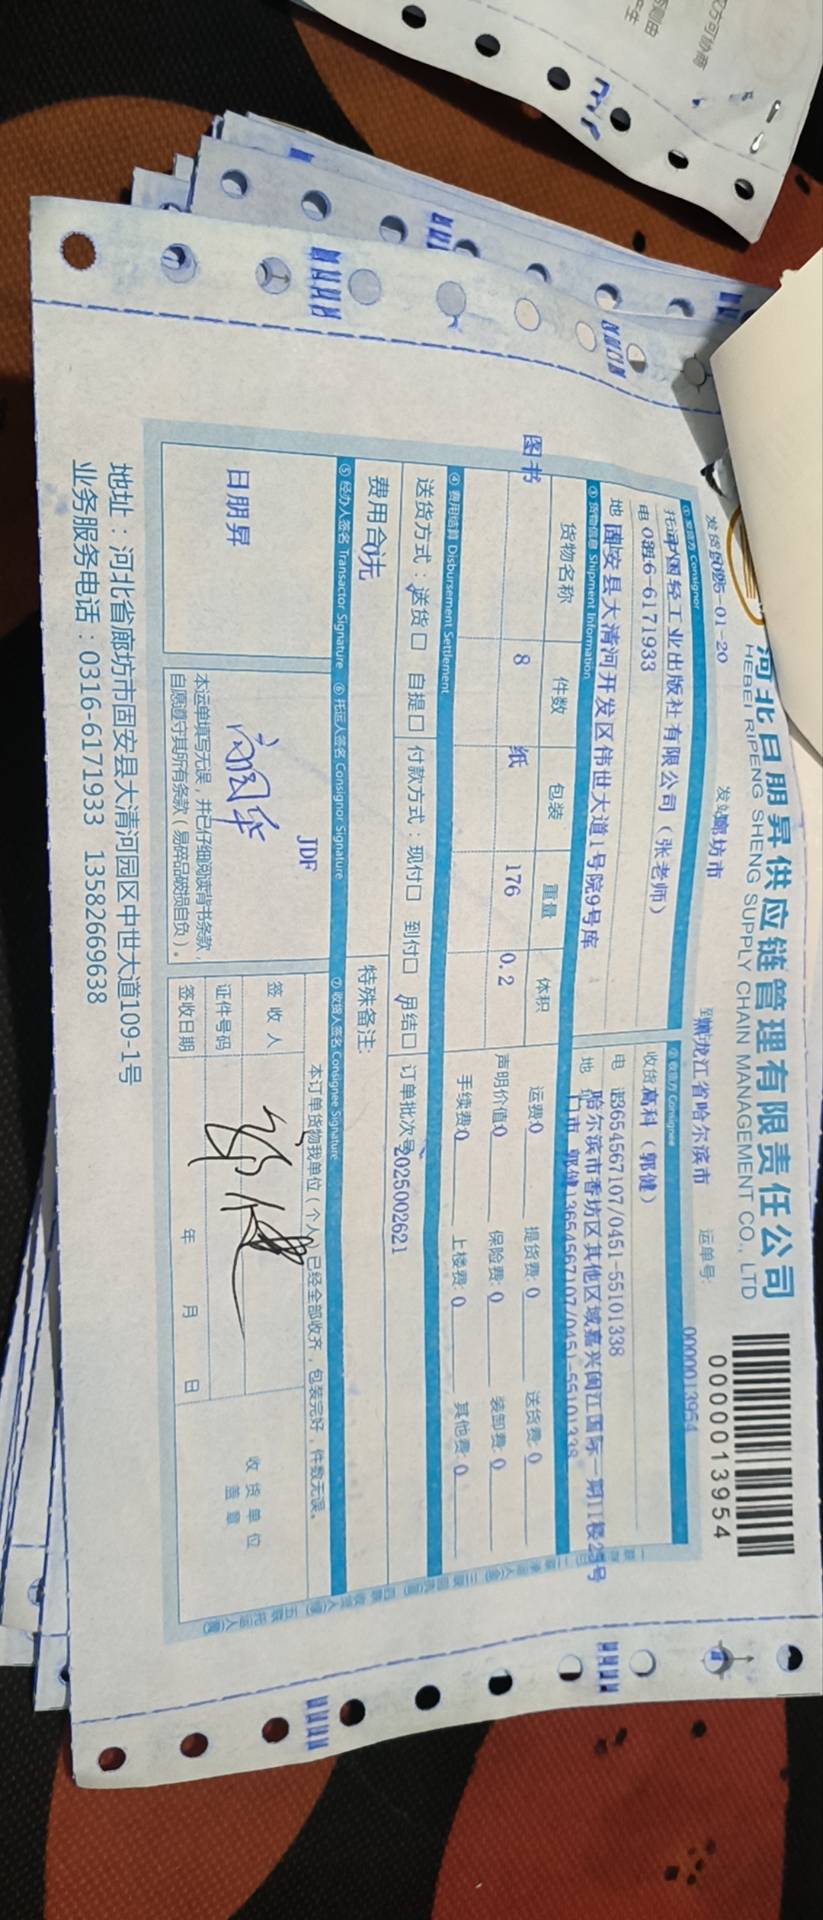 河北日朋昇供应链管理有限责任公司
HEBEI RIPENG SHENG SUPPLY CHAIN MANAGEMENT CO., LTD
0000013954
2025-01-20
廊坊市
黑龙江省哈尔滨市
运单号:
0000013954
① 发货方 Consignor
② 收货方 Consignee
中国轻工业出版社有限公司（张老师）
收货 高科（郭健）
电 0316-6171933
电 13654567107/0451-55101338
地 固安县大清河开发区伟世大道1号院9号库
地 哈尔滨市香坊区其他区域嘉兴闽江国际一期11楼25号
门市，郭健13654567107/0451-55101338
③ 货物信息 Shipment Information
货物名称 件数 包装 重量 体积
图书 8 纸 176 0.2
运费:0 提货费: 0 送货费: 0
声明价值:0 保险费: 0 装卸费: 0
手续费:0 上楼费: 0 其他费: 0
④ 费用结算 Disbursement Settlement
送货方式：送货□ 自提□ 付款方式：现付□ 到付□ 月结□ 订单批次号 2025002621
费用合
特殊备注:
⑤ 经办人签名 Transactor Signature
⑥ 托运人签名 Consignor Signature
⑦ 收货人签名 Consignee Signature
日朋昇
JDF
本运单填写无误，并已仔细阅读背书条款，
自愿遵守其所有条款（易碎品破损自负）。
本订单货物我单位（个人）已经全部收齐，包装完好，件数无误。
签收人
郭健
证件号码
签收日期
年 月 日
收货单位
盖章
地址：河北省廊坊市固安县大清河园区中世大道109-1号
业务服务电话：0316-6171933 13582669638